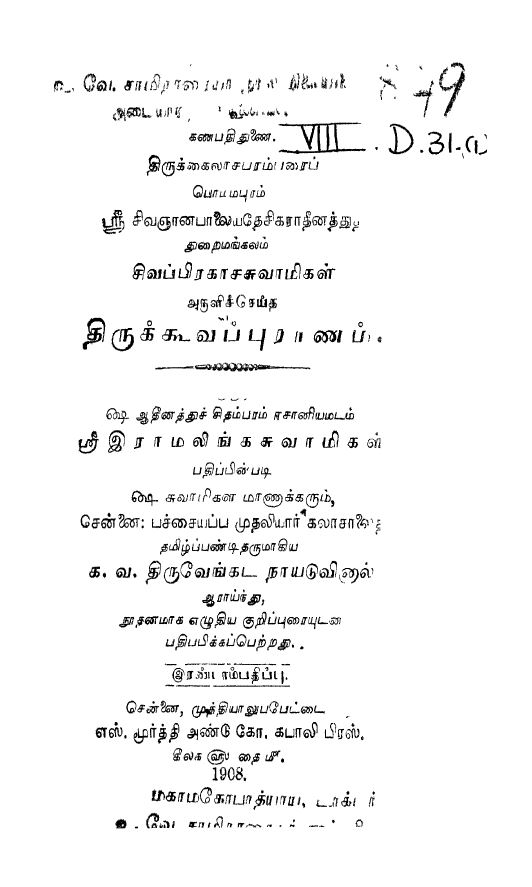 உ. வே. சாமிநாதையர் நூல் நிலையம்
அடையாறு,
கணபதிதுணை.
VIII . D.31.(1)
திருக்கைலாசபரம்பரைப்
பொம்மபுரம்
ஸ்ரீ சிவஞானபாலையதேசிகராதீனத்து,
துறைமங்கலம்
சிவப்பிரகாசசுவாமிகள்
அருளிச்செய்த
திருக்கூவப்புராணம்.
ஷை ஆதீனத்துச் சிதம்பரம் ஈசானியமடம்
ஸ்ரீ இராமலிங்கசுவாமிகள்
பதிப்பின்படி
ஷை சுவாமிகள் மாணாக்கரும்,
சென்னை: பச்சையப்ப முதலியார் கலாசாலைத்
தமிழ்ப்பண்டிதருமாகிய
க. வ. திருவேங்கட நாயடுவினால்
ஆராய்ந்து,
நூதனமாக எழுதிய குறிப்புரையுடன்
பதிபபிக்கப்பெற்றது.
இரண்டாம்பதிப்பு.
சென்னை, முத்தியாலுபபேட்டை
எஸ். மூர்த்தி அண்டு கோ. கபாலி பிரஸ்.
கீலக ௵ தை ௴.
1908.
மகாமகோபாத்யாய, டாக்டர்
உ. வே. சாமிநாதையர்